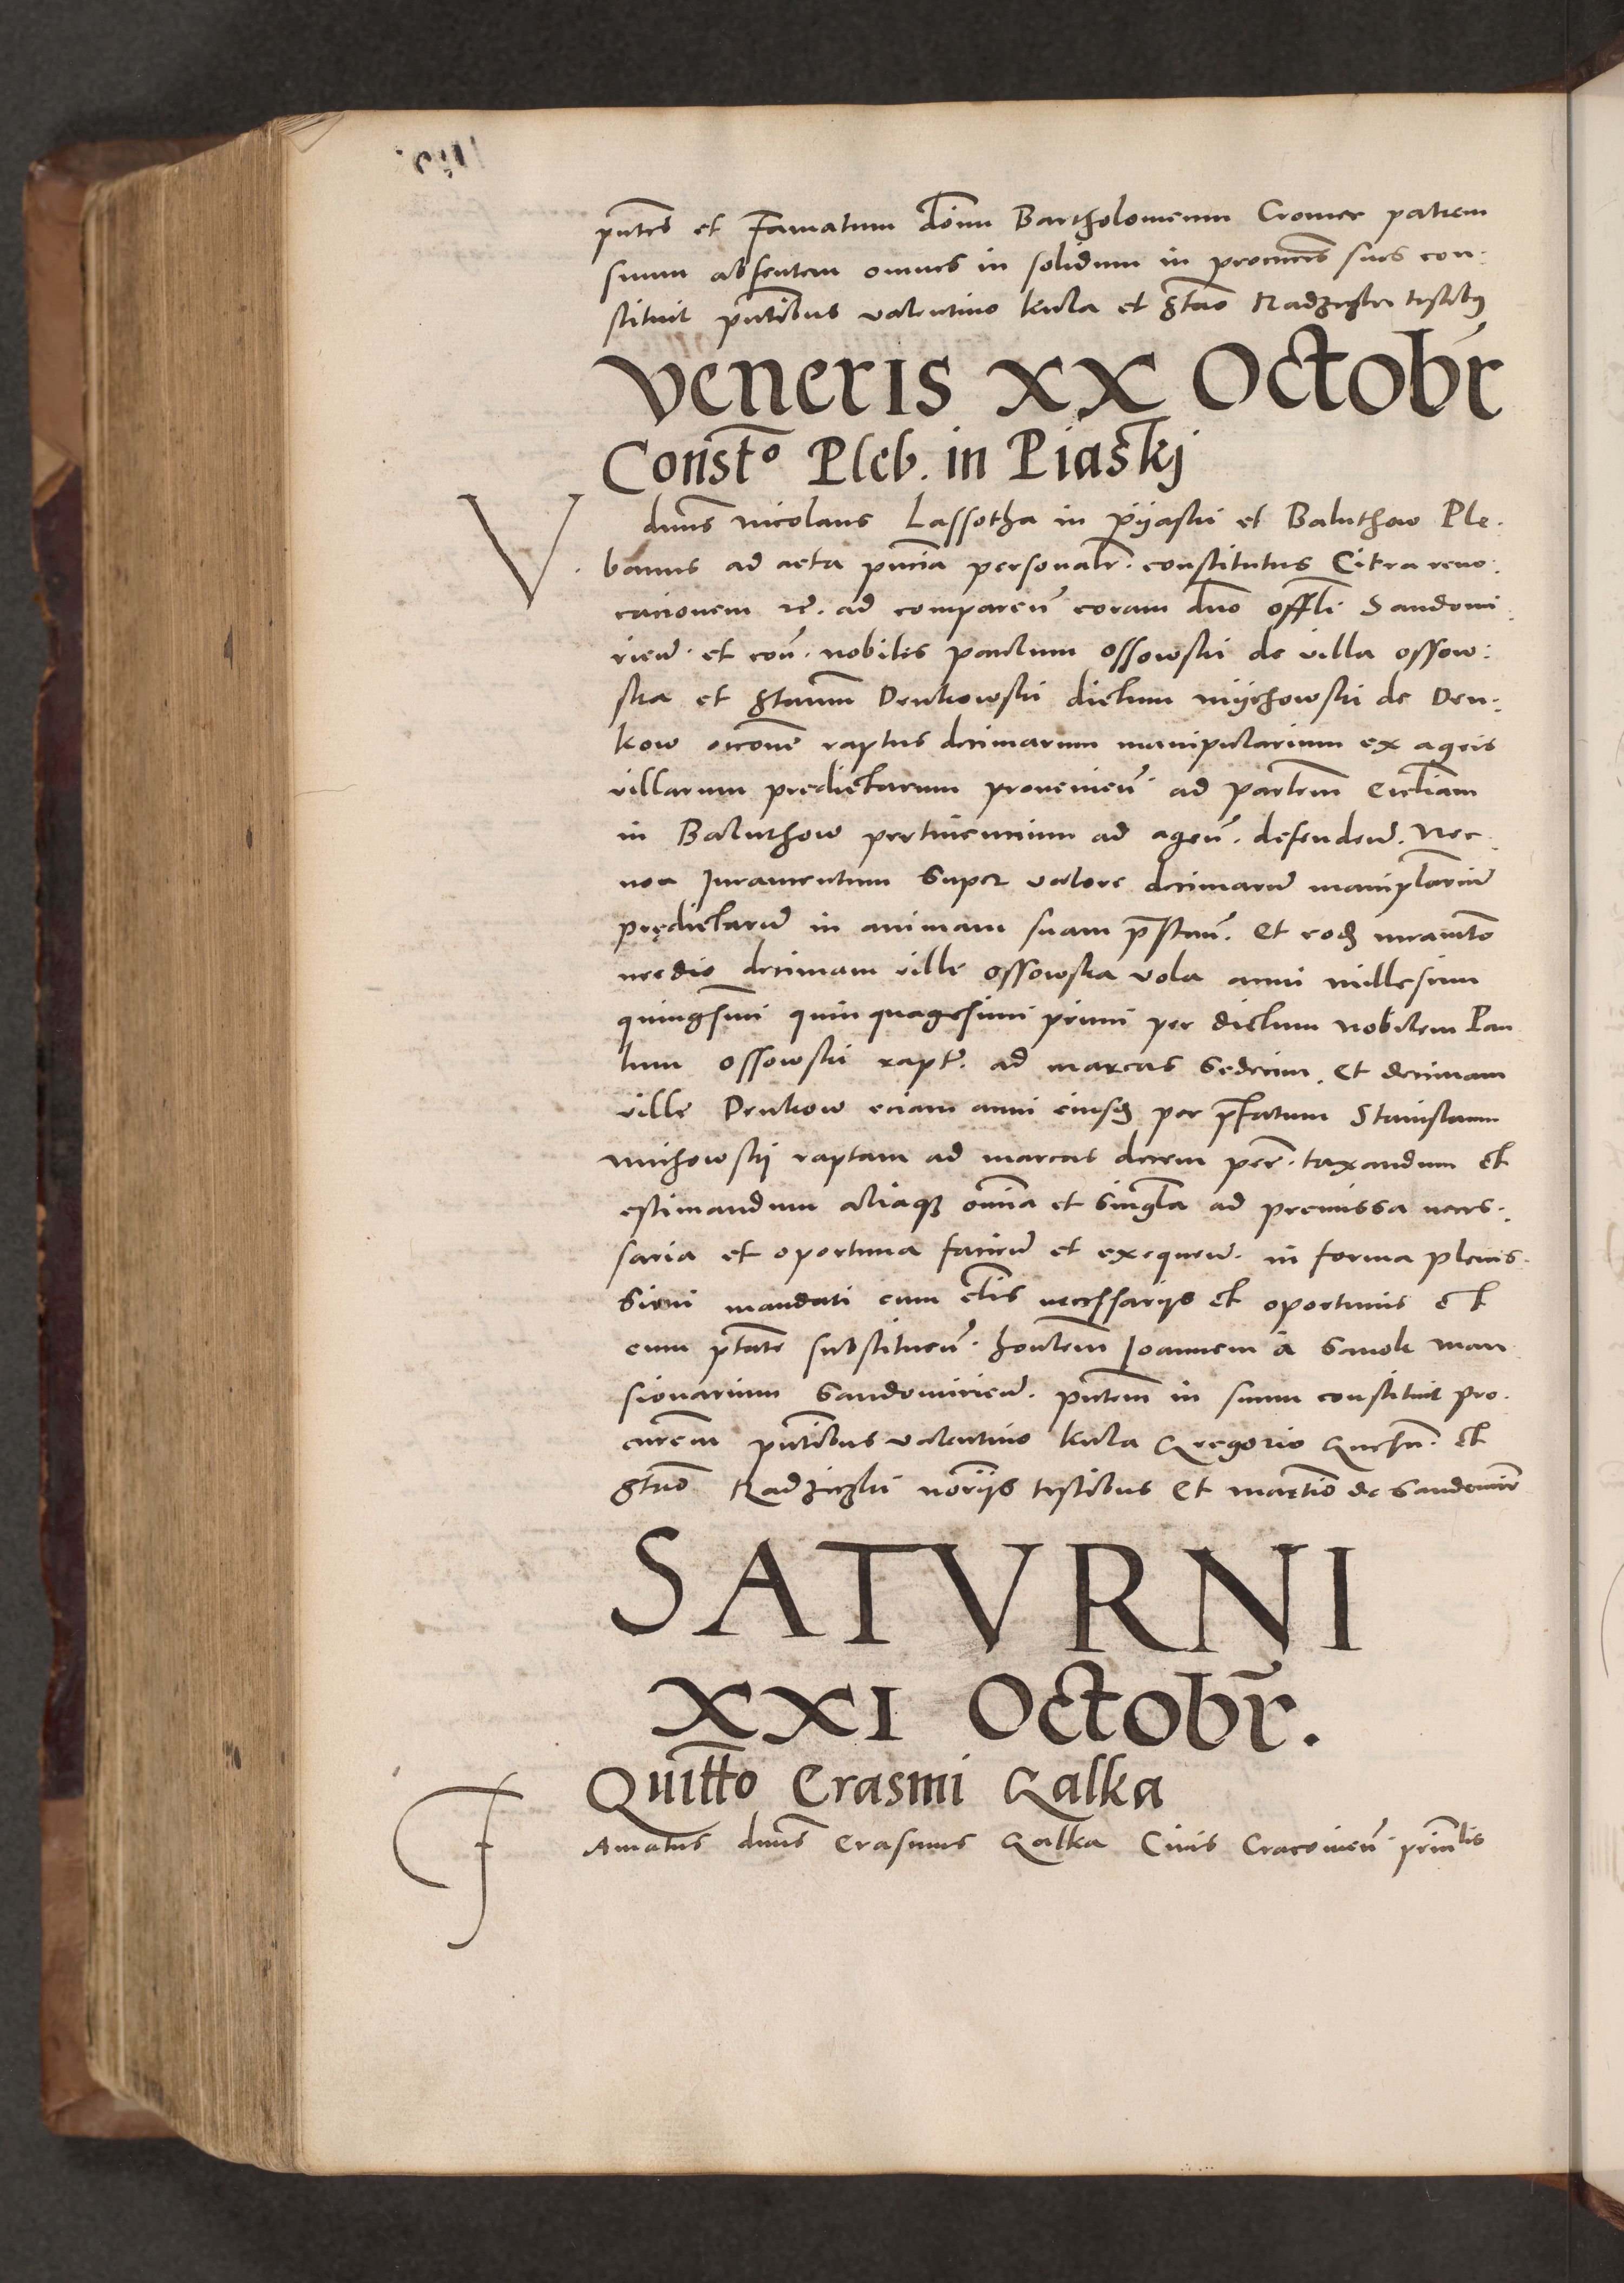 pntes et Famatum dom̄ Bartholomeum Cromer patrem
suum absentem omnes in solidum in procures suos con:
stituit pntibus valentino kula et Stano Radzieglij testib9
veneris xx Octobr̄
Const̄o Pleb. in Piaskj
V. dnus nicolaus Lassotha in pÿaski et Baluthow Ple.
banus ad acta pncia personalr. constitutus Citra revo:
cacionem rc̄. ad compareñ coram dno offli Sandomi:
rieñ. et con̄. nobiles paulum Ossowski de villa ossow:
ska et Stanum Denkowski dictum mÿchowski de Den:
kow occone raptus decimarum manipularium ex agris
villarum predictarum provenieñ. ad partem Eccliam
in Baluthow pertinencium ad ageñ. defendeñ. Nec
non Juramentum super valore decimarum maniplarium
prędictarum in animam suam prestañ. Et eod iuramto
medio decimam ville Ossowska vola anni millesimi
quingesimi quinquagesimi primi per dictum nobilem Pau
lum ossowski rapt̄. ad marcas sedecim. Et decimam
ville Denkow eciam anni eiusd per pfatum Stanislaum
michowskj raptam ad marcas decem pec̄. taxandum et
estimandum aliaq3 omnia et singla ad premissa neces:
saria et oportuna facieñ et exequeñ. in forma plenis.
simi mandati cum clis necessarijs et oportunis et
cum ptate substitueñ. honlem Joannem a Sanok man
sionarium Sandomirieñ. pntem in suum constituit pro.
curem pntibus valentino kula Gregorio et
Stano Radzieglij norijs testibus Et martino de Sandomir
SATVRNI
XXI Octobr̄.
Quitto Erasmi Galka
FAmatus dnus Erasmus Galka Civis Cracovieñ. prinalis